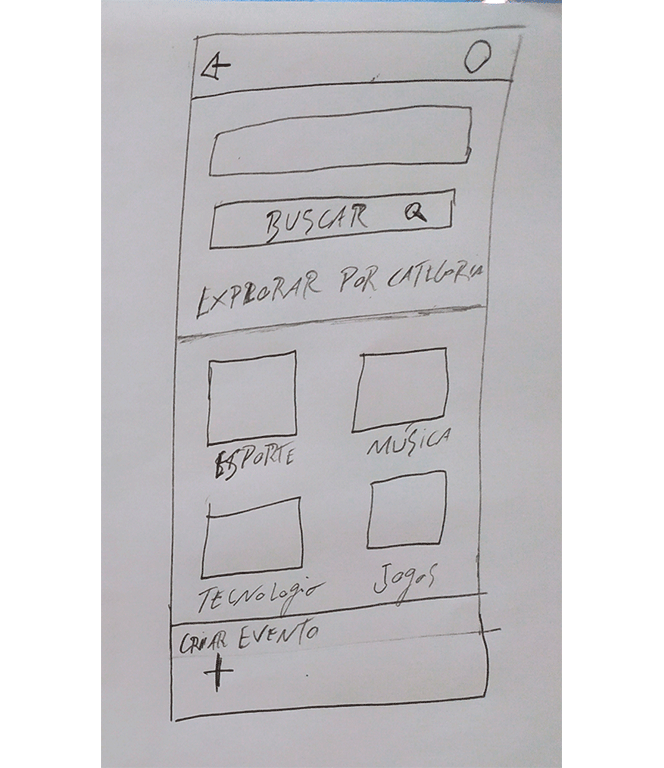 BUSCAR
EXPLORAR POR CATEGORIA
ESPORTE
MÚSICA
TECNOLOGIA
Jogos
CRIAR EVENTO
+